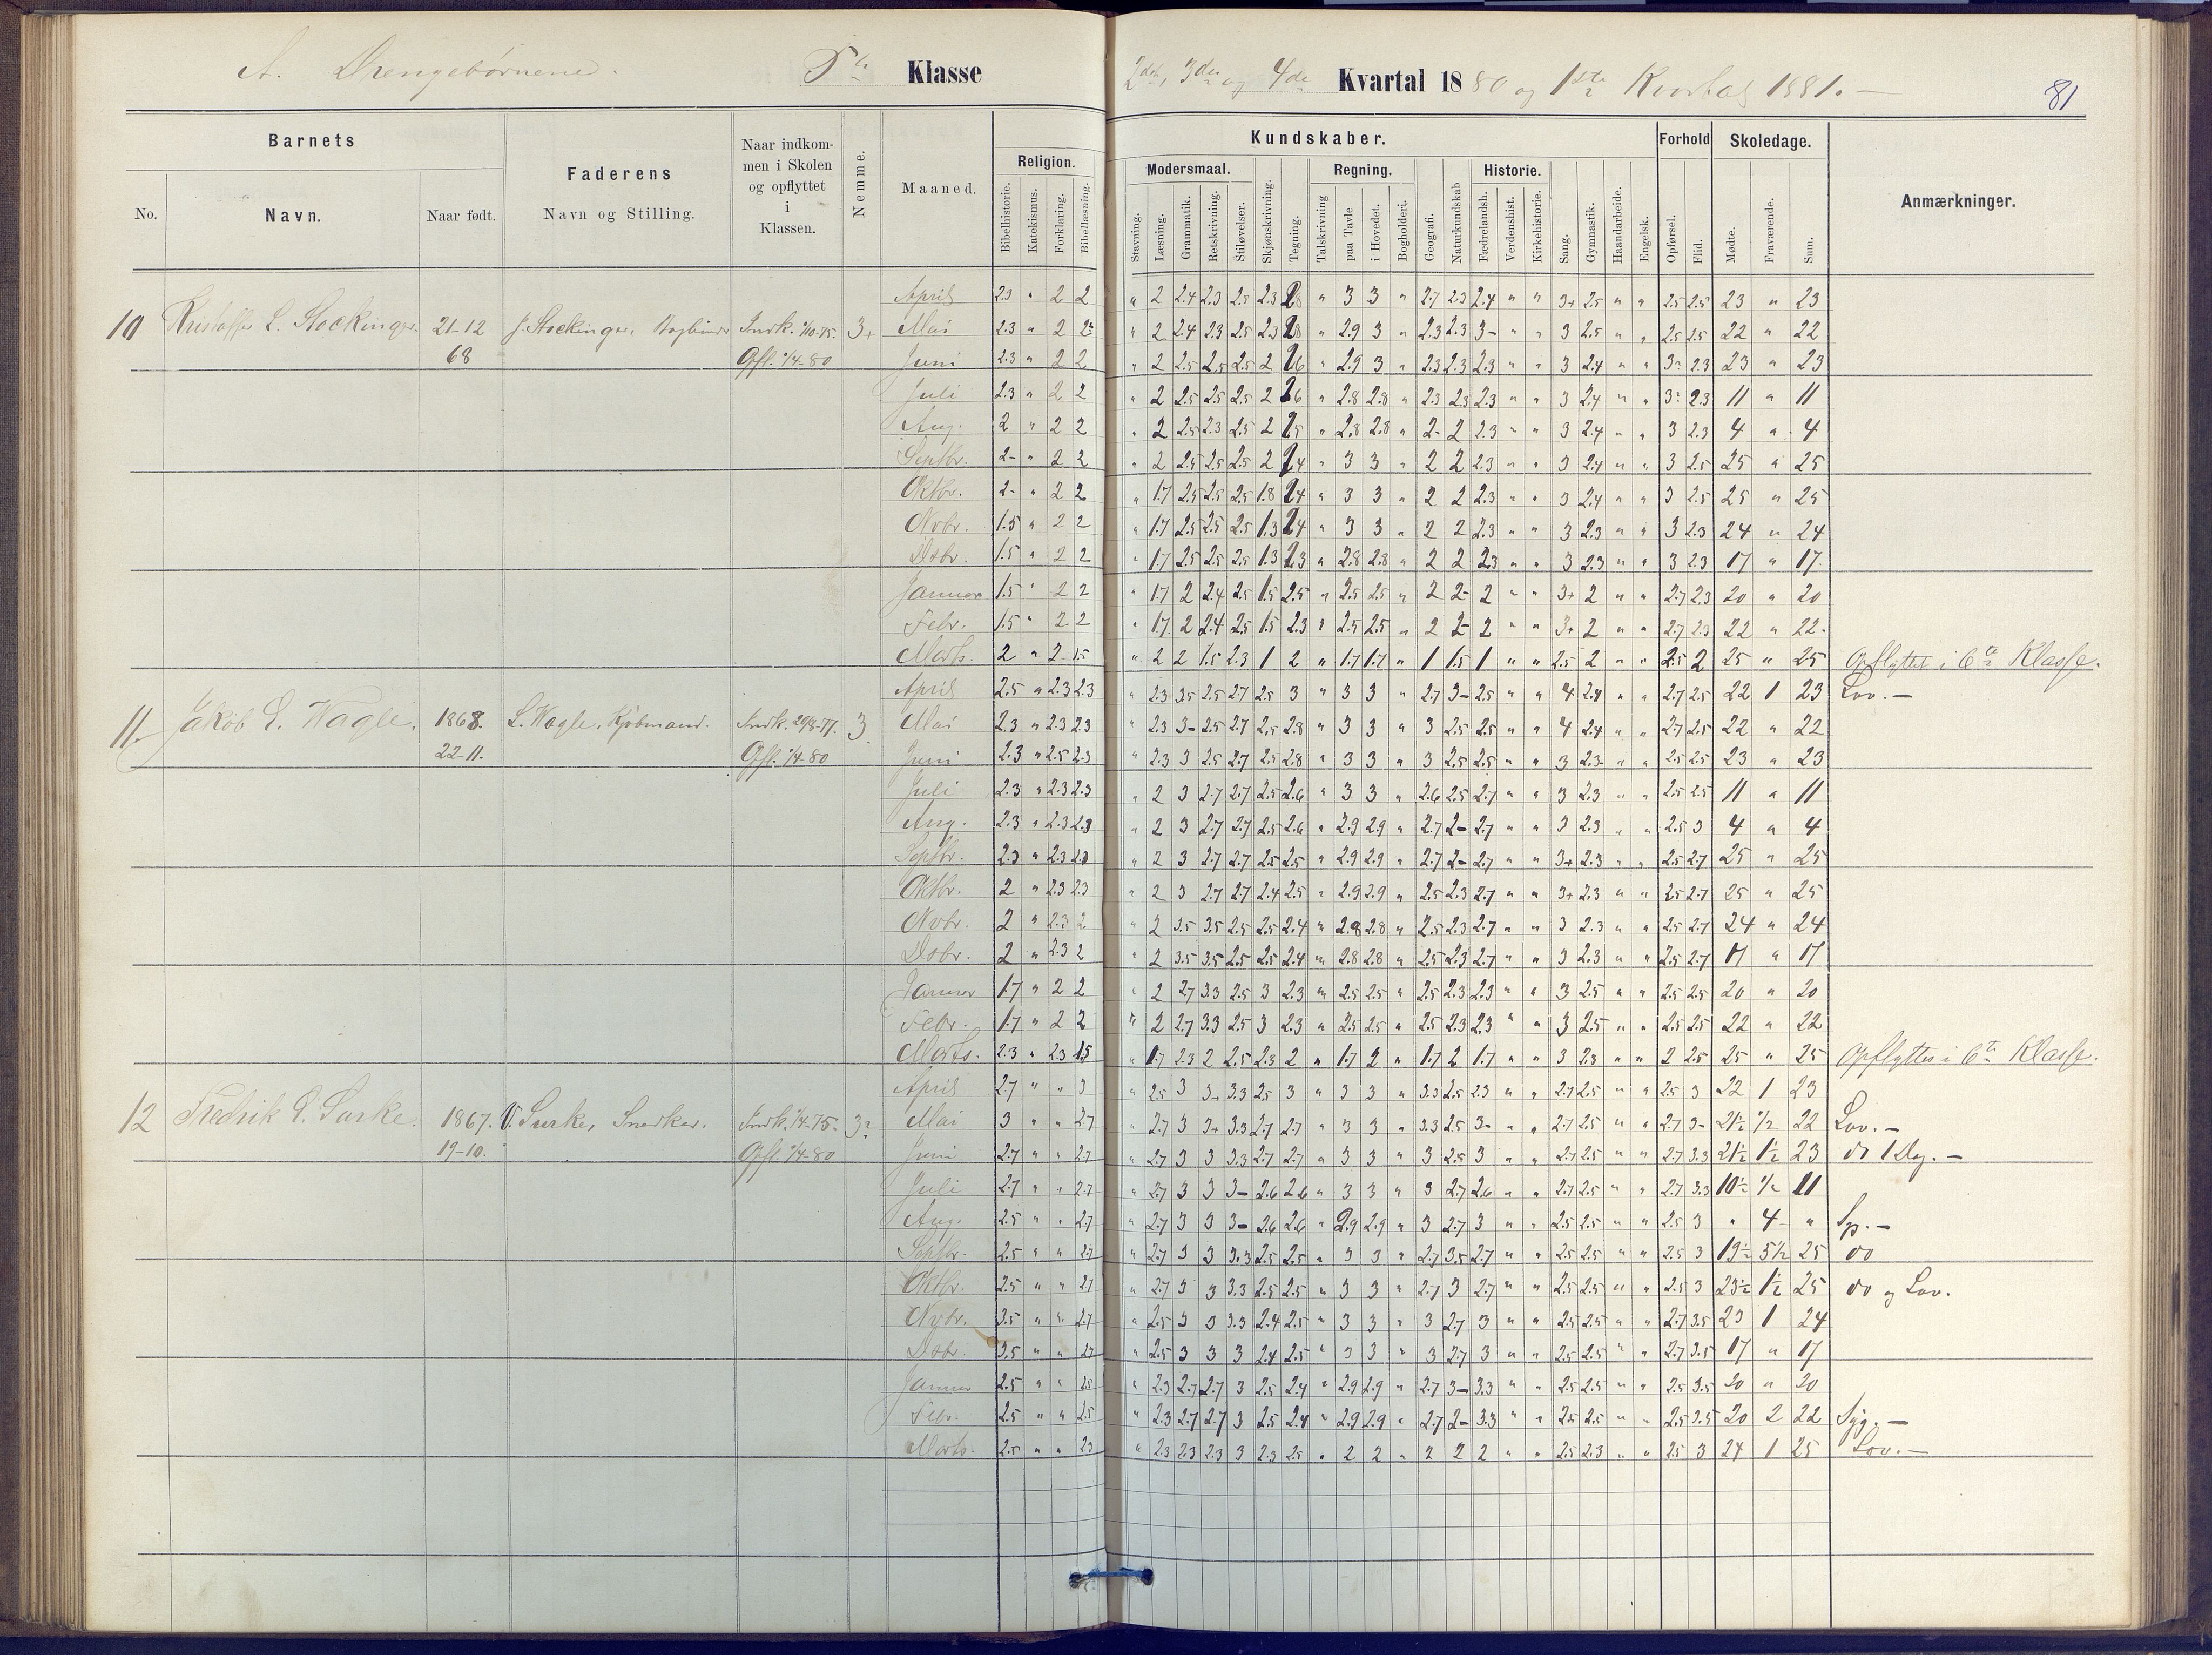 A. Drengebørnene. 5te Klasse
2det, 3die og 4de Kvartal 1880 og 1ste Kvartal 1881. —
81
Barnets
Faderens
Naar indkommen i Skolen og opflyttet i Klassen.
Nemme.
Maaned.
Religion.
No.
Navn.
Naar født.
Navn og Stilling.
Bibelhistorie. Katekismus. Forklaring. Bibellæsning.
Kundskaber.
Forhold
Skoledage.
Anmærkninger.
Modersmaal.
Regning.
Historie.
Stavning. Læsning. Grammatik. Retskrivning. Stiløvelser. Skjønskrivning. Tegning. Talskrivning paa Tavle i Hovedet. Bogholderi. Geografi. Naturkundskab Fædrelandsh. Verdenshist. Kirkehistorie. Sang. Gymnastik. Haandarbeide. Engelsk. Opførsel. Flid. Mødte. Fraværende. Sum.
April 2.3 " 2 2 " 2 2.4 2.3 2.5 2.3 " 3 3 " 2.7 2.3 2.4 " " 3+ 2.5 " " 2.5 2.5 23 " 23
10 Kristoffer L. Stockinger. 21-12 J. Stockinger, Bogbinder Indk. 1/10-75. 3+ Mai 2.3 " 2 " 2 2.4 2.3 2.5 2.3 " 2.9 3 " 2.3 2.3 3- " " 3 2.5 " " 2.5 2.5 22 " 22
68 Opfl. 1/4-80 Juni 2.3 " 2 2 " 2 2.5 2.5 2.5 2 " 2.9 3 " 2.3 2.3 2.3 " " 3 2.4 " " 2.3 23 " 23
Juli 2.3 " 2 2 " 2 2.5 2.5 2.5 2 " 2.8 2.8 " 2.3 2.3 2.3 " " 3 2.4 " " 2.3 11 " 11
Aug. 2 " 2 2 " 2 2.5 2.3 2.5 2 " 2.8 2.8 " 2- 2 2.3 " " 3 2.4 " " 3 2.3 4 " 4
Septbr. 2- " 2 2 " 2 2.5 2.5 2.5 2 " 3 3 " 2 2 2.3 " " 3 2.4 " " 3 2.5 25 " 25
Oktbr. 2- " 2 2 " 1.7 2.5 2.5 2.5 1.8 " 3 3 " 2 2 2.3 " " 3 2.4 " " 3 2.5 25 " 25
Nvbr. 1.5 " 2 2 " 1.7 2.5 2.5 2.5 1.3 " 3 3 " 2 2 2.3 " " 3 2.3 " " 3 2.3 24 " 24
Dsbr. 1.5 " 2 2 " 1.7 2.5 2.5 2.5 1.3 2.3 " 2.8 2.8 " 2 2 2.3 " " 3 2.3 " " 3 2.3 17 " 17.
Januar 1.5 " 2 2 " 1.7 2 2.4 2.5 1.5 2.5 " 2.5 2.5 " 2 2- 2 " " 3+ 2 " " 2.7 2.3 20 " 20
Febr. 1.5 " 2 2 " 1.7 2 2.4 2.5 1.5 2.3 " 2.5 2.5 " 2 2- 2 " " 3+ 2 " " 2.7 2.3 22 " 22.
Marts. 2 " 2 1.5 " 2 2 1.5 2.3 1 2 " 1.7 1.7 " 1 1.5 1 " " 2.5 2 " " 2.5 2 25 " 25 Opflyttet i 6te Klasse.
April 2.5 " 2.3 2.3 " 2.3 3.5 2.5 2.7 2.5 3 " 3 3 " 2.7 3- 2.5 " " 4 2.4 " " 2.7 2.5 22 1 23 Lov. —
11. Jakob E. Wagle. 1868. L. Wagle, Kjøbmand. Indk. 29/8-77. 3 Mai 2.3 " 2.3 2.3 " 2.3 3- 2.5 2.7 2.5 2.8 " 3 3 " 3 2.5 2.5 " " 4 2.4 " " 2.7 2.5 22 " 22
22-11. Opfl. 1/4-80 Juni 2.3 " 2.5 2.3 " 2.3 3 2.5 2.7 2.5 2.8 " 3 3 " 3 2.5 2.5 " " 3 2.3 " " 2.5 2.5 23 " 23
Juli 2.3 " 2.3 2.3 " 2 3 2.7 2.7 2.5 2.6 " 3 3 " 2.6 2.5 2.7 " " 3 2.3 " " 2.5 2.5 11 " 11
Aug. 2.3 " 2.3 2.3 " 2 3 2.7 2.7 2.5 2.6 " 2.9 2.9 " 2.7 2- 2.7 " " 3 2.3 " " 2.5 3 4 " 4
Septbr. 2.3 " 2.3 2.3 " 2 3 2.7 2.7 2.5 2.5 " 2.9 2.9 " 2.7 2- 2.7 " " 3+ 2.3 " " 2.5 2.7 25 " 25
Oktbr. 2 " 2.3 2.3 " 2 3 2.7 2.7 2.4 2.5 " 2.9 2.9 " 2.5 2.3 2.7 " " 3+ 2.3 " " 2.5 2.7 25 " 25
Nvbr. 2 " 2.3 2 " 2 3.5 3.5 2.5 2.5 2.4 " 2.8 2.8 " 2.5 2.3 2.7 " " 3 2.3 " " 2.5 2.7 24 " 24
Dsbr. 2 " 2.3 2 " 2 3.5 3.5 2.5 2.5 2.4 " 2.8 2.8 " 2.5 2.3 2.7 " " 3 2.3 " " 2.5 2.7 17 " 17
Januar 1.7 " 2 2 " 2 2.7 3.3 2.5 3 2.3 " 2.5 2.5 " 2.5 2.3 2.3 " " 3 2.5 " " 2.5 2.5 20 " 20
Febr. 1.7 " 2 2 " 2 2.7 3.3 2.5 3 2.3 " 2.5 2.5 " 2.5 2.3 2.3 " " 3 2.5 " " 2.5 2.5 22 " 22
Marts. 2.3 " 2.3 1.5 " 1.7 2.3 2 2.5 2.3 2 " 1.7 2 " 1.7 2 1.7 " " 3 2.3 " " 2 2.5 25 " 25 Opflyttes i 6te Klasse.
April 2.7 " " 3 " 2.5 3 3+ 3.3 2.5 3 " 3 3 " 3.3 2.5 2.3 " " 2.7 2.5 " " 2.5 3 22 1 23
12 Fredrik E. Surke. 1867. V. Surke, Snedker. Indk. 1/4-75. Mai 3 " " 2.7 " 2.7 3 3+ 3.3 2.7 2.7 " 3 3 " 3.3 2.5 3- " " 2.7 2.5 " " 2.7 3- 21½ ½ 22 Lov. —
19-10. Opfl. 1/4-80 Juni 2.7 " " 2.7 " 2.7 3 3 3.3 2.7 2.7 " 3 3 " 3 2.5 3 " " 2.7 2.5 " " 2.7 3.3 21½ 1½ 23 do 1 Dag. —
Juli 2.7 " " 2.7 " 2.7 3 3 3- 2.6 2.6 " 3 3 " 3 2.7 2.6 " " 2.7 2.5 " " 2.7 3.3 10½ ½ 11
Aug. 2.5 " " 2.7 " 2.7 3 3 3- 2.6 2.6 " 2.9 2.9 " 3 2.7 3 " " 2.5 2.5 " " 2.5 3 " 4 " Sp. —
Septbr. 2.5 " " 2.7 " 2.7 3 3 3.3 2.5 2.5 " 3 3 " 2.7 3.5 2.7 " " 2.5 2.5 " " 2.5 3 19½ 5½ 25 do
Oktbr. 2.5 " " 2.7 " 2.7 3 3 3.3 2.5 2.5 " 3 3 " 2.7 3 2.7 " " 2.5 2.5 " " 2.5 3 23½ 1½ 25 do og Lov.
Nvbr. 3.5 " " 2.7 " 2.5 3 3 3.3 2.4 2.5 " 3 3 " 3 2.7 3 " " 2.5 2.5 " " 2.7 3.5 23 1 24
Dsbr. 3.5 " " 2.7 " 2.5 3 3 3 2.4 2.5 " 3 3 " 3 2.7 3 " " 2.5 2.5 " " 2.7 3.5 17 " 17
Januar 2.5 " " 2.5 " 2.3 2.7 2.7 3 2.5 2.4 " 2.9 2.9 " 2.7 3- 3.3 " " 2.5 2.5 " " 2.5 3.5 20 " 20
Febr. 2.5 " " 2.5 " 2.3 2.7 2.7 3 2.5 2.4 " 2.9 2.9 " 2.7 2- 3.3 " " 2.5 2.5 " " 2.5 3.5 20 2 22 Syg. —
Marts. 2.5 " " 2.3 " 2.3 2.3 2.3 3 2.3 2.5 " 2 2 " 2 2 2 " " 2.5 2.3 " " 2.5 3 24 1 25 Lov. —